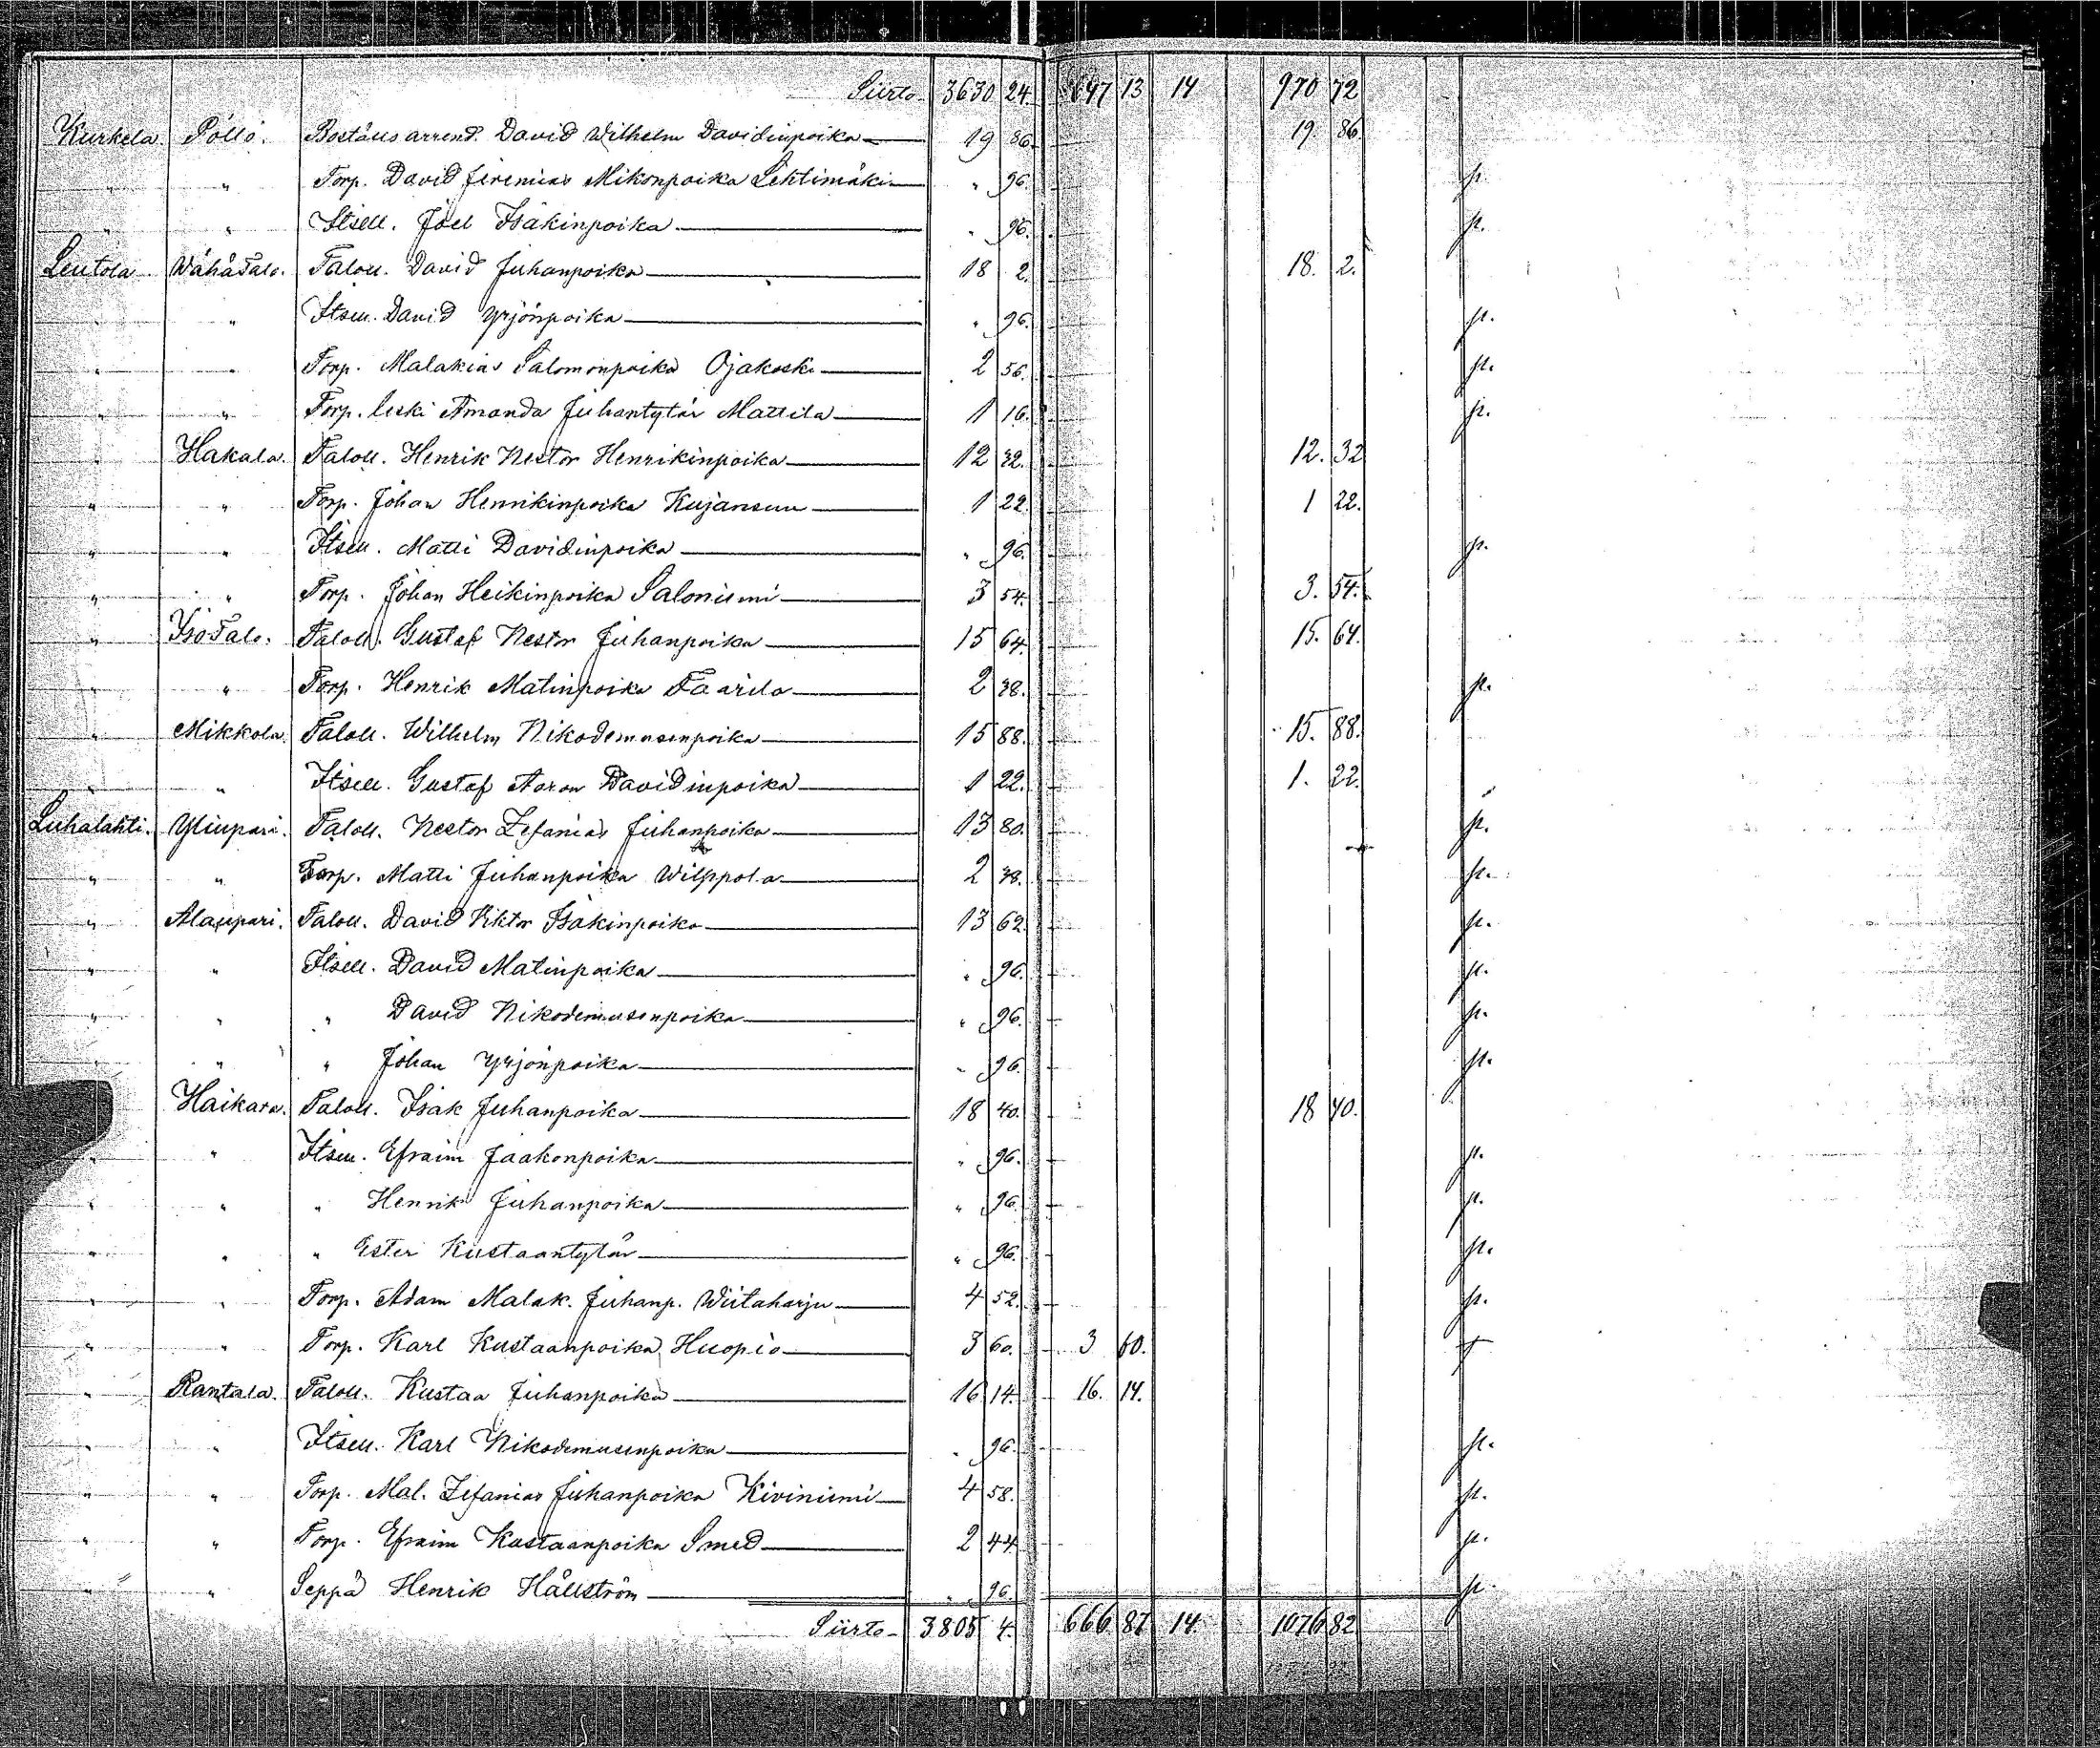 Siirto 3630 24. 647 13 14 970 72
Kurkela Pöllö. Bostäls arrend. David Wilhelm Davidinpoika 19 86. 19. 86.
" " Torp. David Jeremias Mikonpoika Lehtimäki " 96. pl.
" " Itsell. Joel Isakinpoika " 96. pl.
Leutola WähäTalo. Taloll. David Juhanpoika 18 2. 18. 2.
" " Itsell. David Yrjönpoika " 96. pl.
" " Torp. Malakias Salomonpoika Ojakoski 2 56. pl.
" " Torp. leski Amanda Juhantytär Mattila 1 16. pl.
" Hakala. Taloll. Henrik Nestor Henrikinpoika 12 32. 12. 32
" " Torp. Johan Henrikinpoika Kujansuu 1 22. 1 22.
" " Itsell. Matti Davidinpoika " 96. pl.
" " Torp. Johan Heikinpoika Saloniemi 3 54. 3. 54.
" IsoTalo. Taloll. Gustaf Nestor Juhanpoika 15 64. 15. 64.
" " Torp. Henrik Matinpoika Taarila 2 38. pl.
" Mikkola Taloll. Wilhelm Nikodemusenpoika 15 88. 15. 88.
" " Itsell. Gustaf Aaron Davidinpoika 1 22. 1. 22.
Luhalahti. Yliupari. Taloll. Nestor Zefanias Juhanpoika 13 80. pl.
" " Torp. Matti Juhanpoika Wilppola 2 38. pl.
" Alaupari. Taloll. David Viktor Isakinpoika 13 62. pl.
" " Itsell. David Matinpoika " 96. pl.
" " " David Nikodemusenpoika " 96. pl.
" " " Johan Yrjönpoika " 96. pl.
Haikara. Taloll. Isak Juhanpoika 18 40. 18 40.
" " Itsell. Efraim Jaakonpoika " 96. pl.
" " " Henrik Juhanpoika " 96. pl.
" " " Ester Kustaantytär " 96. pl.
" " Torp. Adam Malak. Juhanp. Wiitaharju 4 52. pl.
" " Torp. Karl Kustaanpoika Huopio 3 60. 3 60.
" Rantala. Taloll. Kustaa Juhanpoika 16 14. 16. 14.
" " Itsell. Karl Nikodemusenpoika " 96. pl.
" " Torp. Mal. Zefanias Juhanpoika Kiviniemi 4 58. pl.
" " Torp. Efraim Kustaanpoika Smed 2 44. pl.
" " Seppä Henrik Hällström " 96. pl.
Siirto 3805 4. 666 87 14. 1076 82